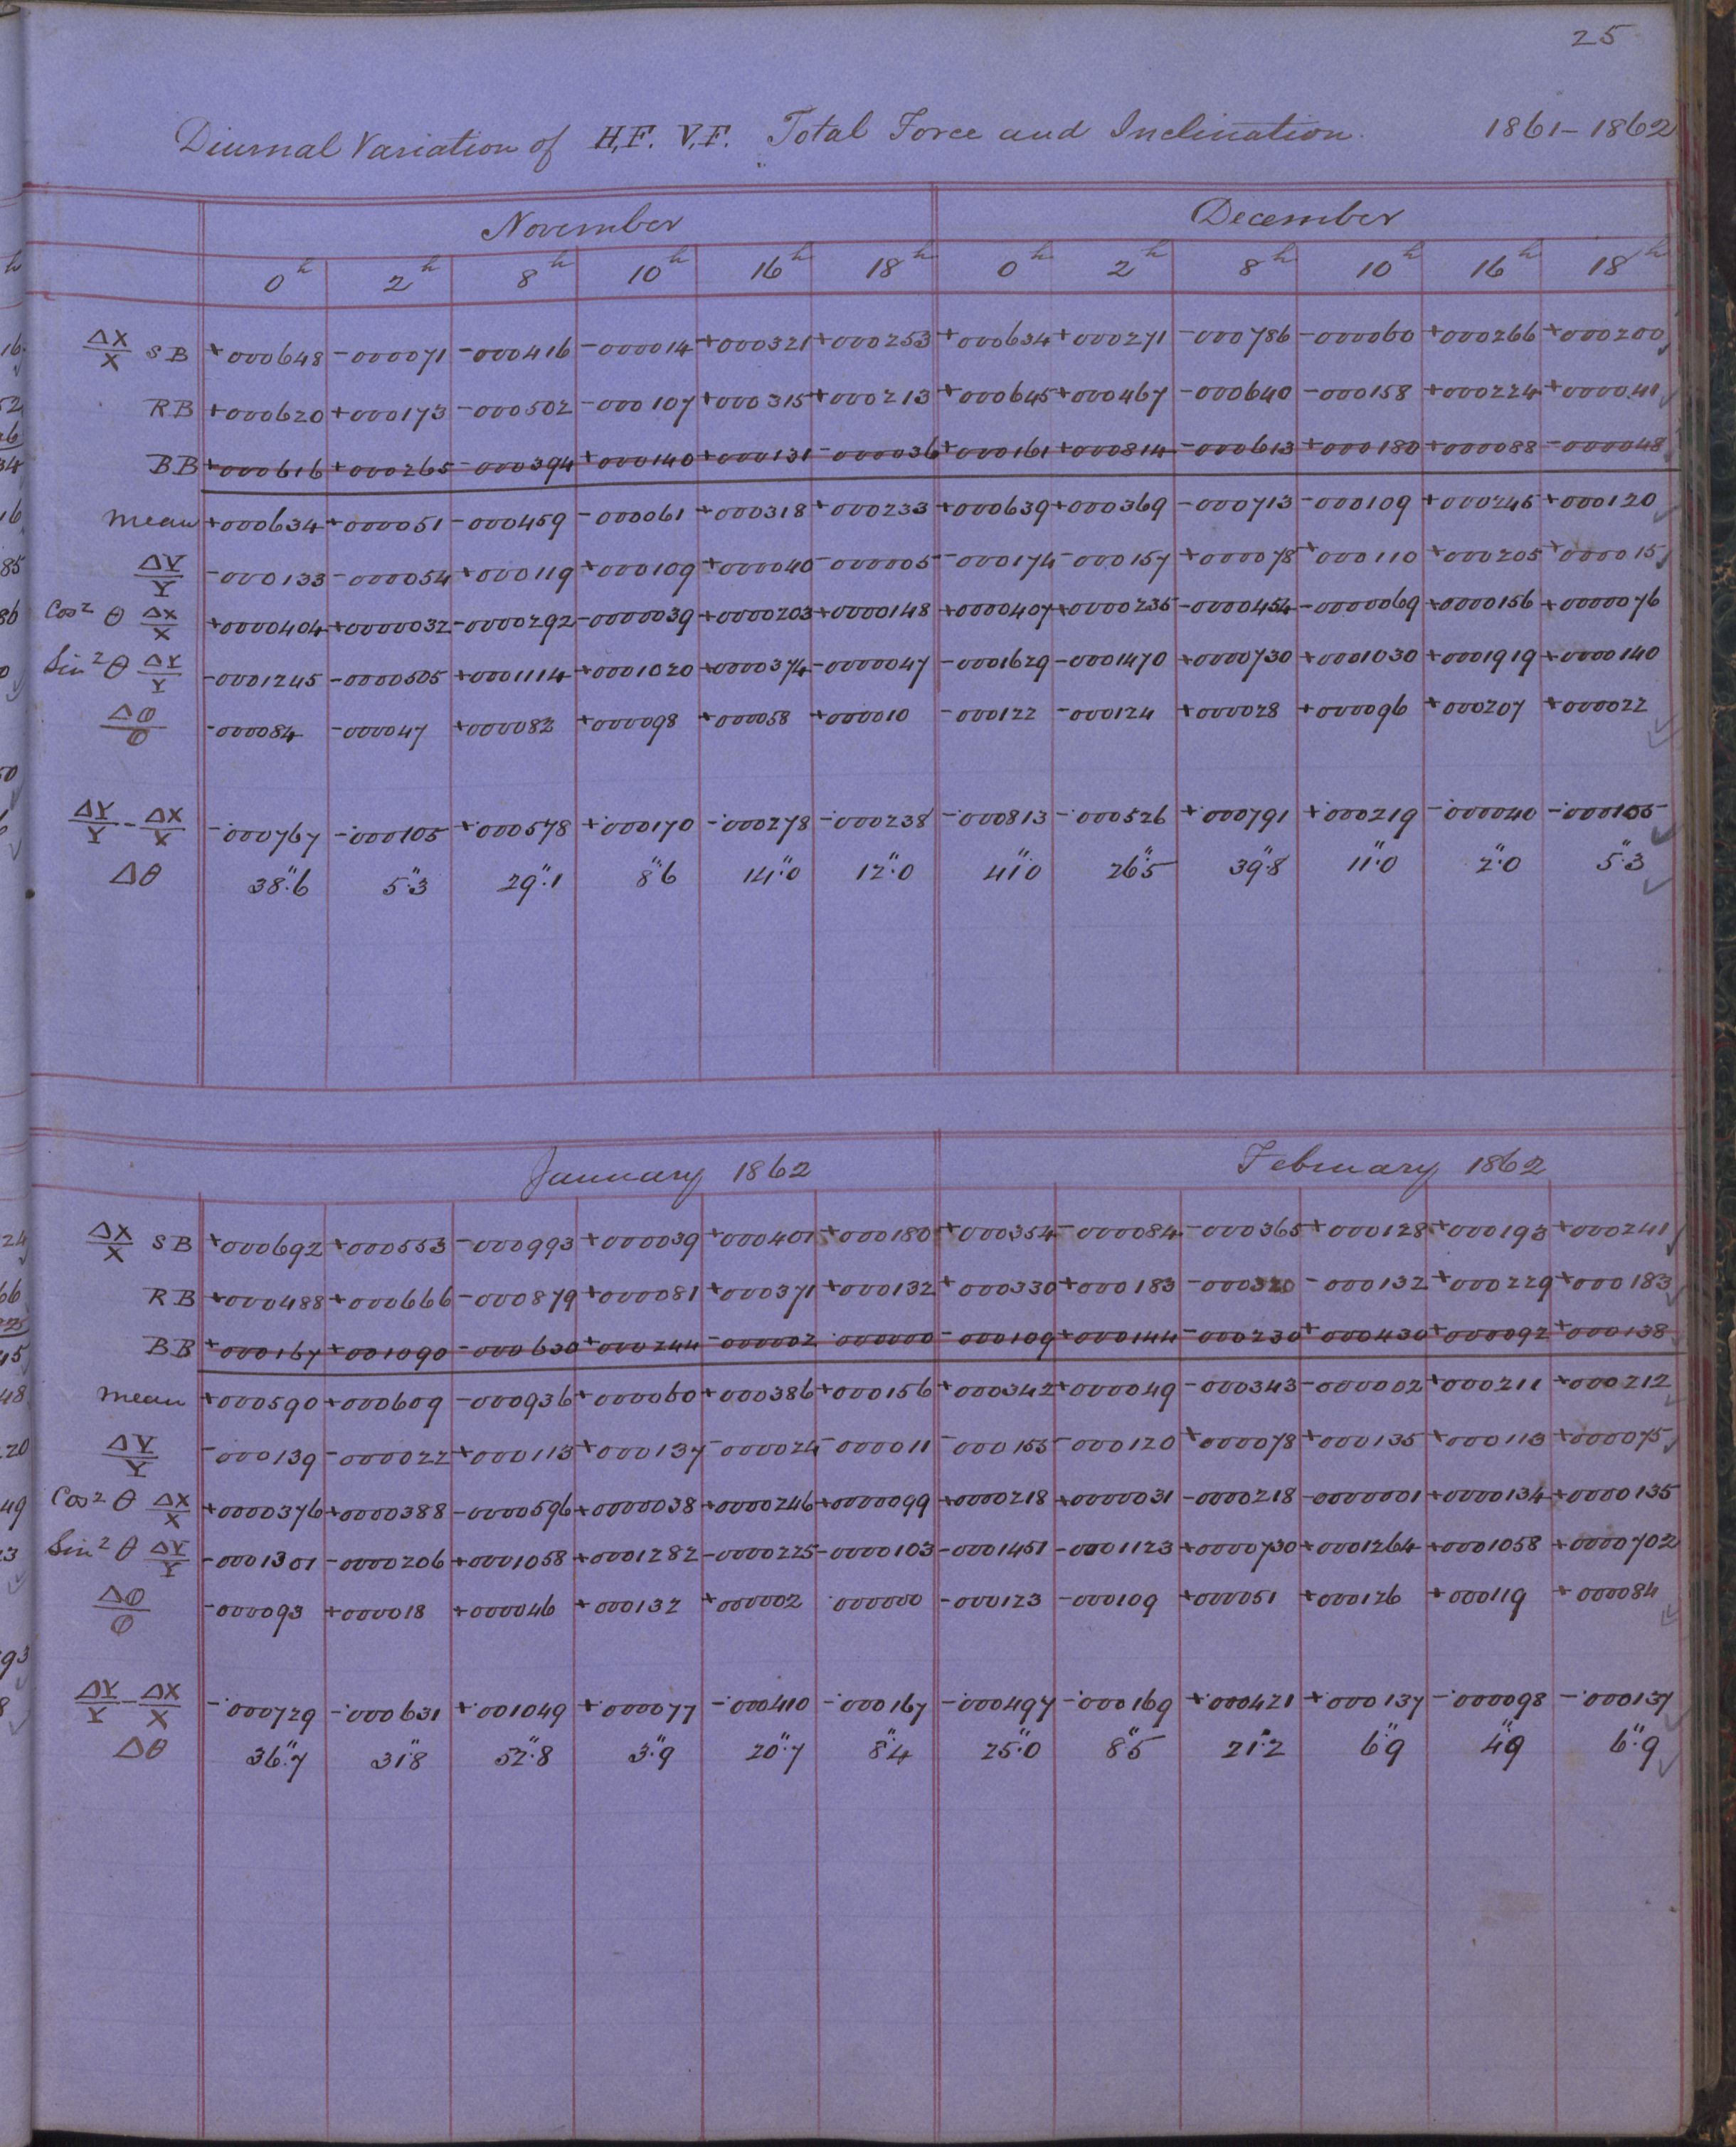 25
Diurnal Variation of H.F. V.F. Total Force and Inclination. 1861-1862
November December
0h 2h 8h 10h 16h 18h 0h 2h 8h 10h 16h 18h
ΔX/X SB +000648 -000071 -000416 -000014 +000321 +000253 +000634 +000271 -000786 -000060 +000266 +000200
RB +000620 +000173 -000502 -000107 +000315 +000213 +000645 +000467 -000640 -000158 +000224 +000041
BB +000616 +000265 -000394 +000140 +000131 -000036 +000161 +000814 -000613 +000180 +000088 -000048
mean +000634 +000051 -000459 -000061 +000318 +000233 +000639 +000369 -000713 -000109 +000245 +000120
ΔY/Y -000133 -000054 +000119 +000109 +000040 -000005 -000174 -000157 +000078 +000110 +000205 +000015
Cos² θ ΔX/X +0000404 +0000032 -0000292 -0000039 +0000203 +0000148 +0000407 +0000235 -0000454 -0000069 +0000156 +0000076
Sin² θ ΔY/Y -0001245 -0000505 +0001114 +0001020 +0000374 -0000047 -0001629 -0001470 +0000730 +0001030 +0001919 +0000140
ΔO/O -000084 -000047 +000082 +000098 +000058 +000010 -000122 -000124 +000028 +000096 +000207 +000022
ΔY/Y - ΔX/X -·000767 -·000105 +·000578 +·000170 -·000278 -·000238 -·000813 -·000526 +·000791 +·000219 -·000040 -·000105
Δθ 38".6 5".3 29".1 8".6 14".0 12".0 41".0 26".5 39".8 11".0 2".0 5".3
January 1862 February 1862
ΔX/X SB +000692 +000553 -000993 +000039 +000401 +000180 +000354 -000084 -000365 +000128 +000193 +000241
RB +000488 +000666 -000879 +000081 +000371 +000132 +000330 +000183 -000320 -000132 +000229 +000183
BB +000167 +001090 -000630 +000244 -000002 ·000000 -000109 +000144 -000230 +000430 +000092 +000138
mean +000590 +000609 -000936 +000060 +000386 +000156 +000342 +000049 -000343 -000002 +000211 +000212
ΔY/Y -000139 -000022 +000113 +000137 -000024 -000011 -000155 -000120 +000078 +000135 +000113 +000075
Cos² θ ΔX/X +0000376 +0000388 -0000596 +0000038 +0000246 +0000099 +0000218 +0000031 -0000218 -0000001 +0000134 +0000135
Sin² θ ΔY/Y -0001301 -0000206 +0001058 +0001282 -0000225 -0000103 -0001451 -0001123 +0000730 +0001264 +0001058 +0000702
ΔO/O -000093 +000018 +000046 +000132 +000002 ·000000 -000123 -000109 +000051 +000126 +000119 +000084
ΔY/Y - ΔX/X -·000729 -·000631 +·001049 +·000077 -·000410 -·000167 -·000497 -·000169 +·000421 +·000137 -·000098 -·000137
Δθ 36".7 31".8 52".8 3".9 20".7 8".4 25".0 8".5 21".2 6".9 4".9 6".9